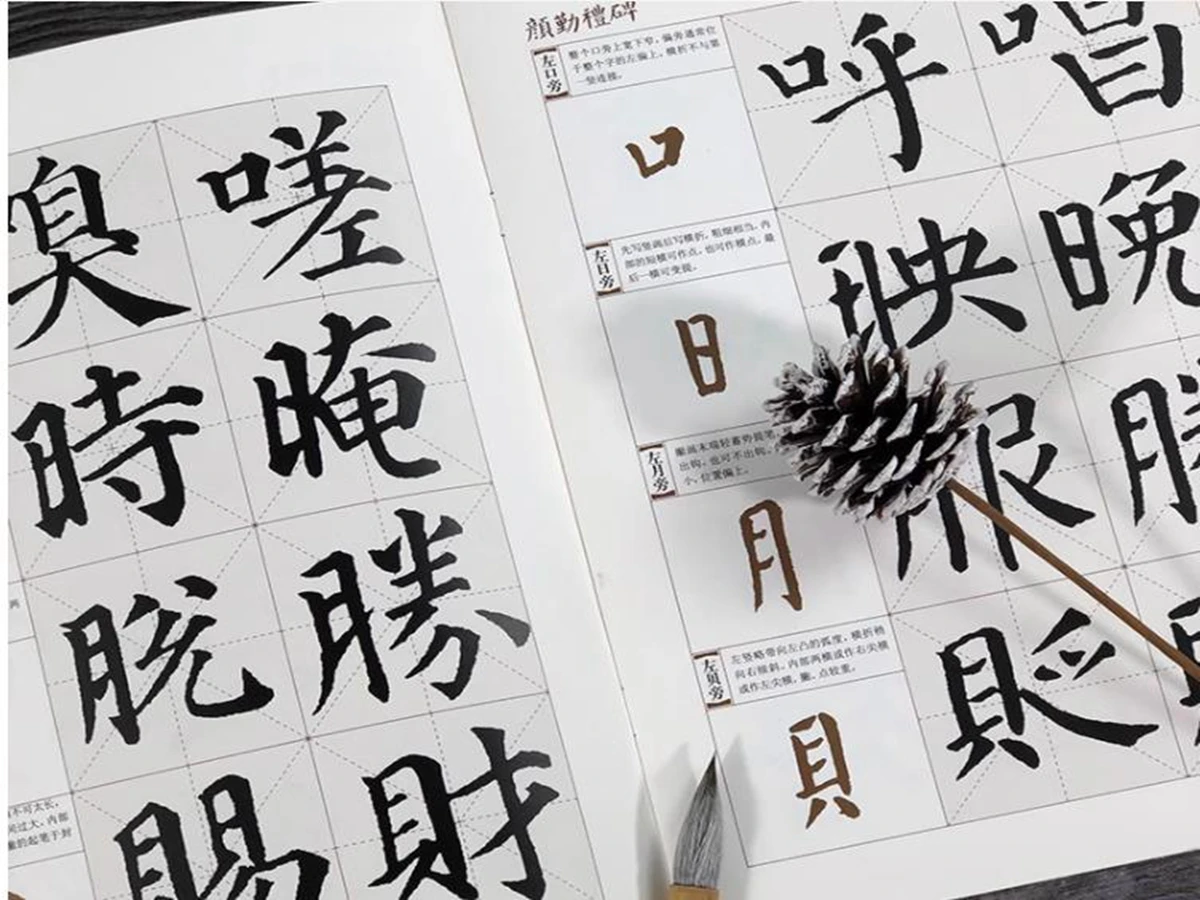 嗅 嗟
時 晻
脱 勝
賜 財
两
不可太长,
过大,内部
的起笔于封
顏勤禮碑
左口旁
整个口旁上宽下窄,偏旁通常位
于整个字的左偏上,横折不与第
一竖连接。
口 呼 唱
左日旁
先写竖画后写横折,粗细相当,内
部的短横可作点,也可作横点,最
后一横可变提。
日 映 晚
左月旁
撇画末端轻蓄势提笔,
出钩,也可不出钩,
小,位置偏上。
月 服
左贝旁
左竖略带向左凸的弧度,横折稍
向右倾斜,内部两横或作右尖横
或作左尖横,撇、点较重。
貝 貶